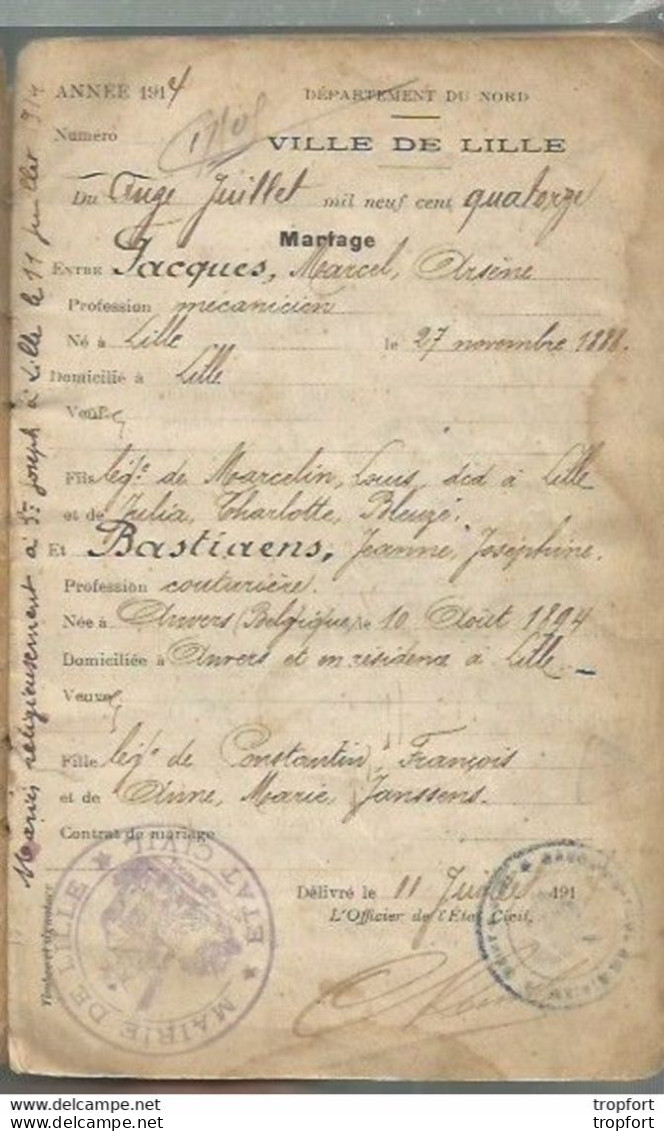 ANNÉE 1914
DÉPARTEMENT DU NORD
Numéro
VILLE DE LILLE
Du Onze Juillet mil neuf cent quatorze
Mariage
ENTRE Jacques, Marcel, Arsène
Profession mécanicien
Né à Lille le 27 novembre 1888.
Domicilié à Lille
Veuf
Fils légᵉ de Marcelin, Louis, déd à Lille
et de Julia, Charlotte, Bleuzé.
Et Bastiaens, Jeanne, Joséphine.
Profession couturière.
Née à Anvers (Belgique) le 10 Août 1894
Domiciliée à Anvers et en résidence à Lille
Veuve
Fille légᵉ de Constantin, François
et de Anne, Marie, Janssens.
Contrat de mariage
Délivré le 11 Juillet 191
L'Officier de l'État Civil,
Mariés religieusement à St Joseph à Lille le 11 juillet 914
MAIRIE DE LILLE ★ ETAT CIVIL ★
www.delcampe.net
tropfort
www.delcampe.net
tropfort